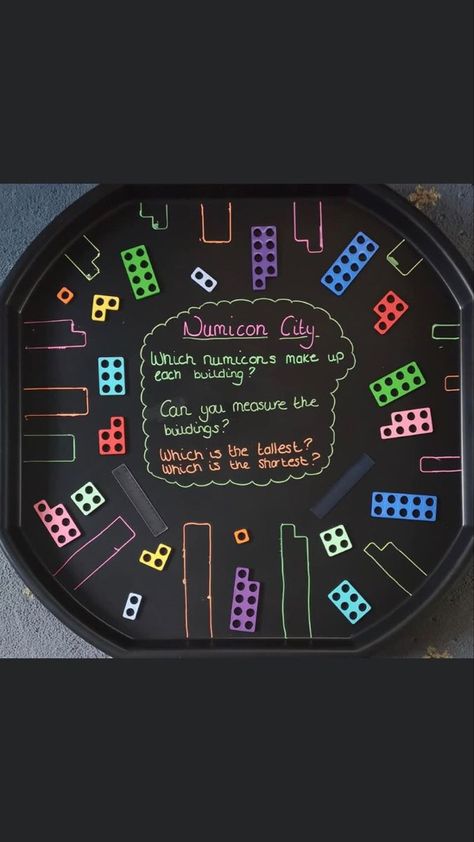 Numicon City.
Which numicons make up
each building?
Can you measure the
buildings?
Which is the tallest?
Which is the shortest?